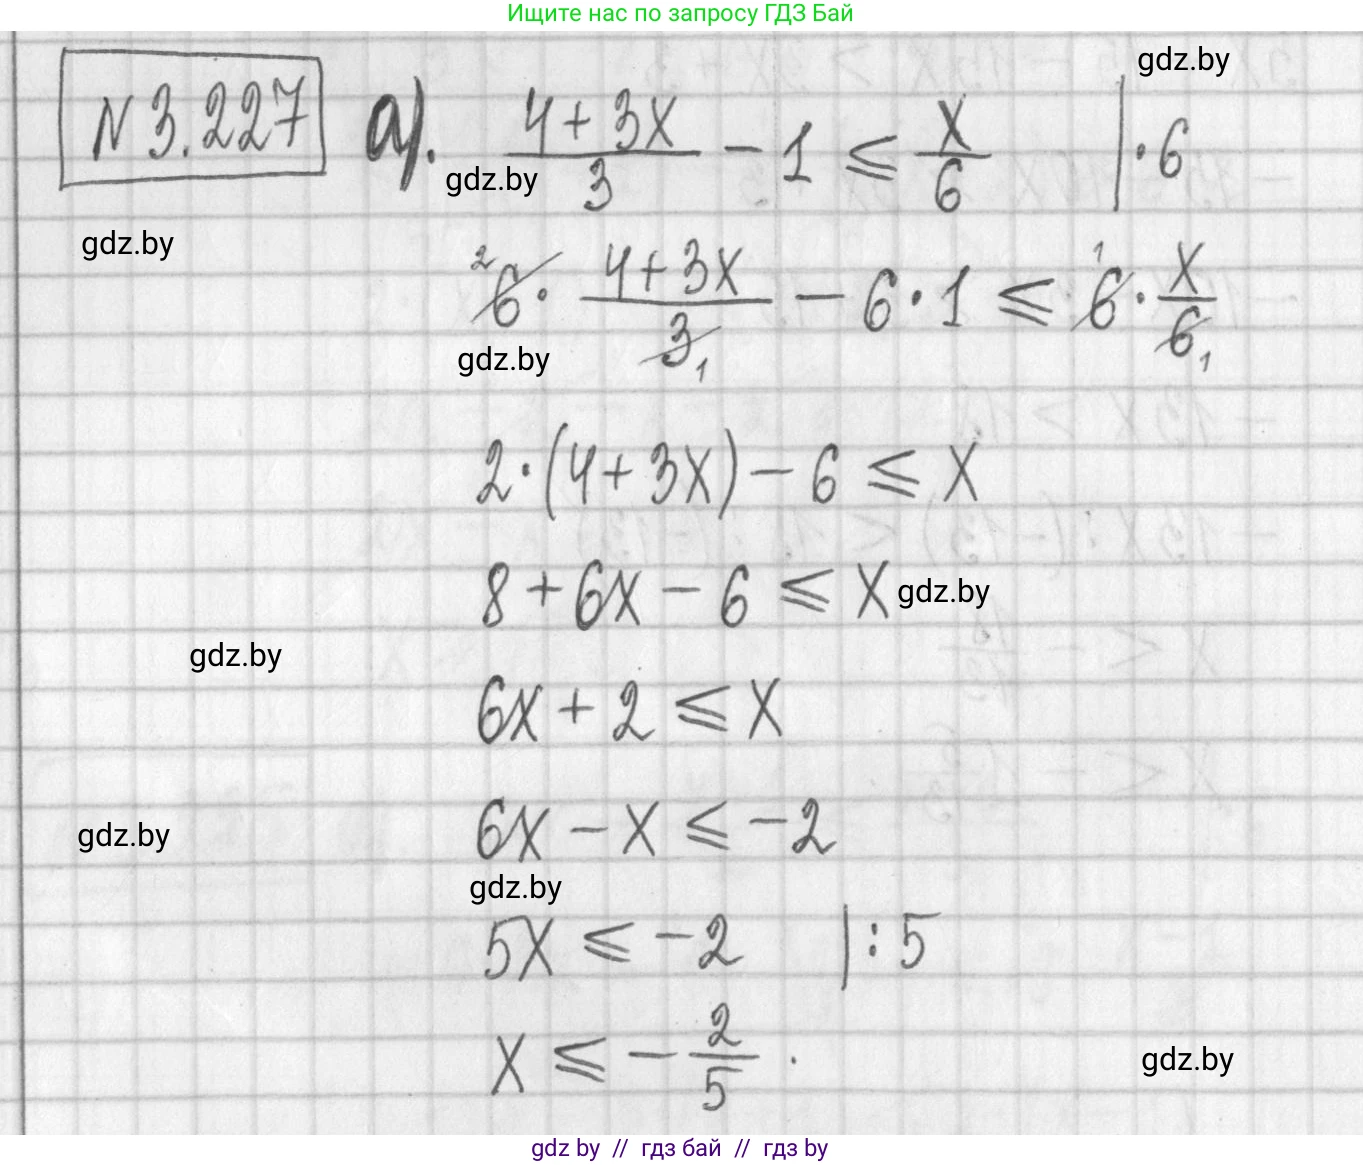 Ищите нас по запросу ГДЗ Бай
gdz.by
N 3.227 а). (4+3x)/3 - 1 ⩽ x/6 | · 6
gdz.by
gdz.by
²6 · (4+3x)/3₁ - 6 · 1 ⩽ ¹6 · x/6₁
gdz.by
2·(4+3x) - 6 ⩽ x
8 + 6x - 6 ⩽ x
gdz.by
gdz.by
6x + 2 ⩽ x
6x - x ⩽ -2
gdz.by
gdz.by
5x ⩽ -2 | : 5
x ⩽ - 2/5 .
gdz.by
gdz by // гдз бай // гдз by